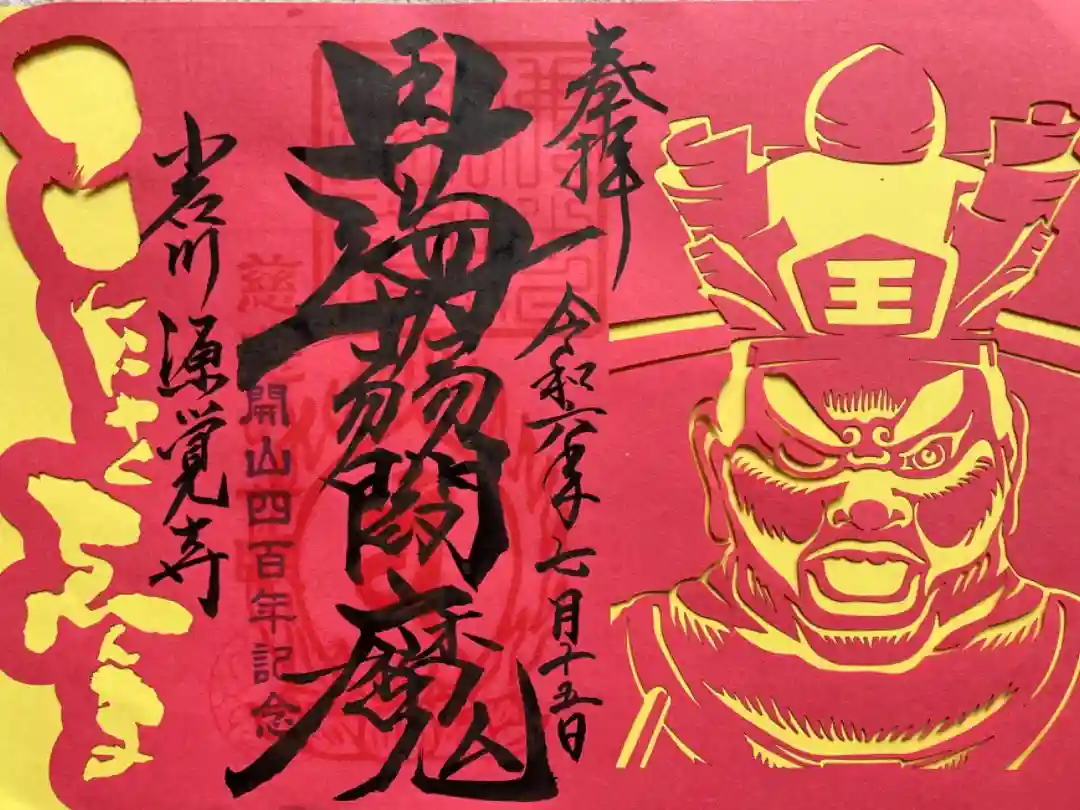 王
奉拝
令和六年七月十五日
蒟蒻閻魔
開山四百年記念
小石川 源覚寺
こんにゃくゑんま